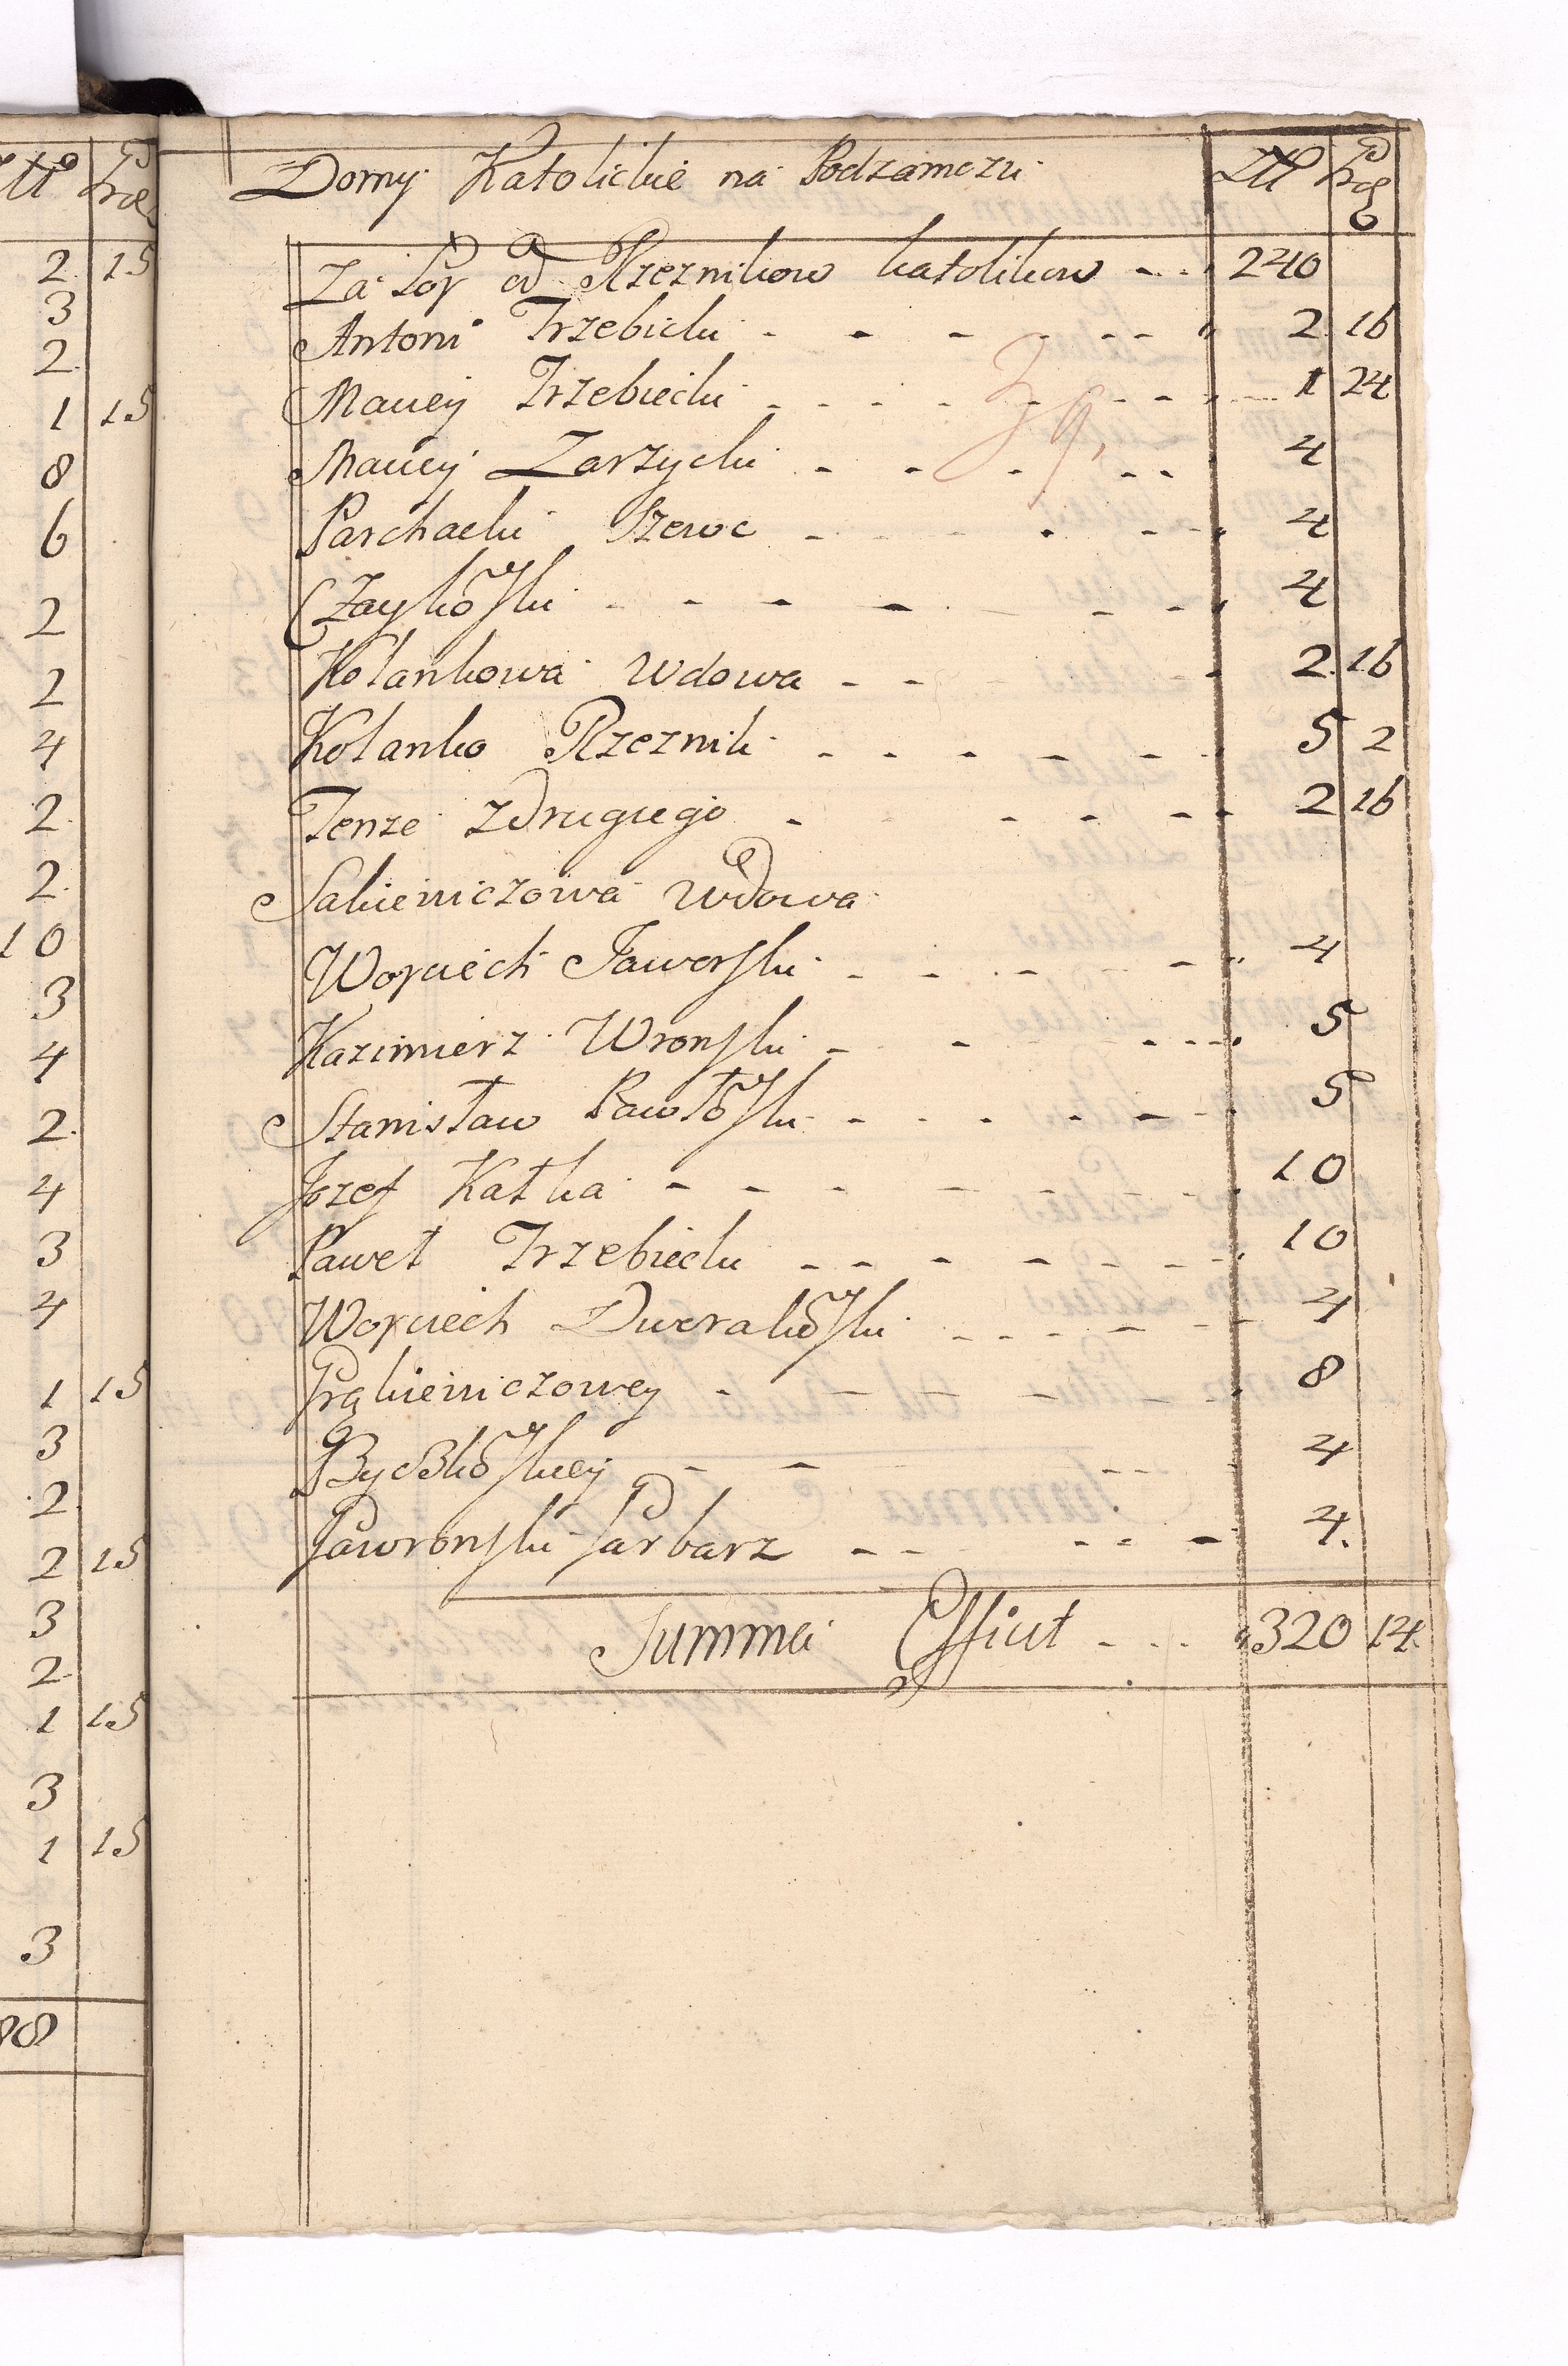 2 15
3
2
1 15
8
6
2
2
4
2
2
10
3
4
2
4
3
4
1 15
3
2
2 15
3
2
1 15
3
1 15
3
Domy Katolickie na Podzamczu Ztł Grosz
Za Łoy od Rzeznikow katolikow 240
Antoni Trzebicki 2 16
Maciey Trzebiecki 1 24
Maciey Zarzycki 4
Parchacki Szewc 4
Czaykoski 4
Kolankowa Wdowa 2 16
Kolanko Rzeznik 5 2
Tenze z drugiego 2 16
Sakieiniczowa Wdowa
Woyciech Jaworski 4
Kazimierz Wronski 5
Stanisław Pawłoski 5
Jozef Katka 10
Paweł Trzebiecki 10
Woyciech Dwerakoski 4
Grąkieiniczowey 8
4
Gawronski Garbarz 4
Summa Efficit 320 14